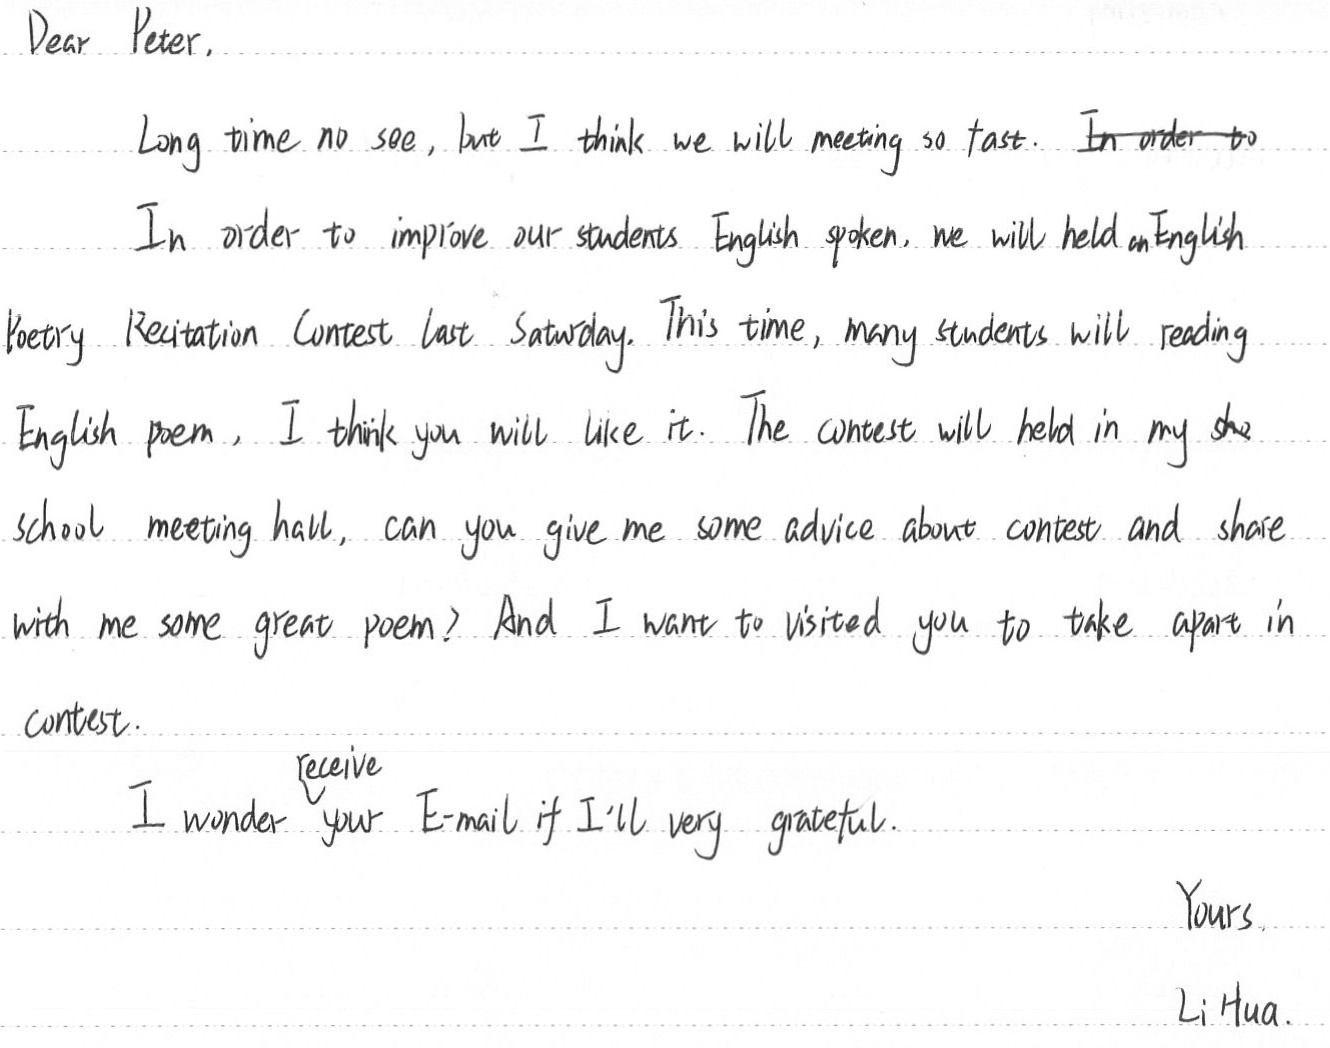 Dear Peter,
Long time no see, but I think we will meeting so fast. In order to
In order to improve our students English spoken, we will held an English
Poetry Recitation Contest last Saturday. This time, many students will reading
English poem, I think you will like it. The contest will held in my sho
school meeting hall, can you give me some advice about contest and share
with me some great poem? And I want to visited you to take apart in
contest.
receive
I wonder your E-mail if I'll very grateful.
Yours,
Li Hua.